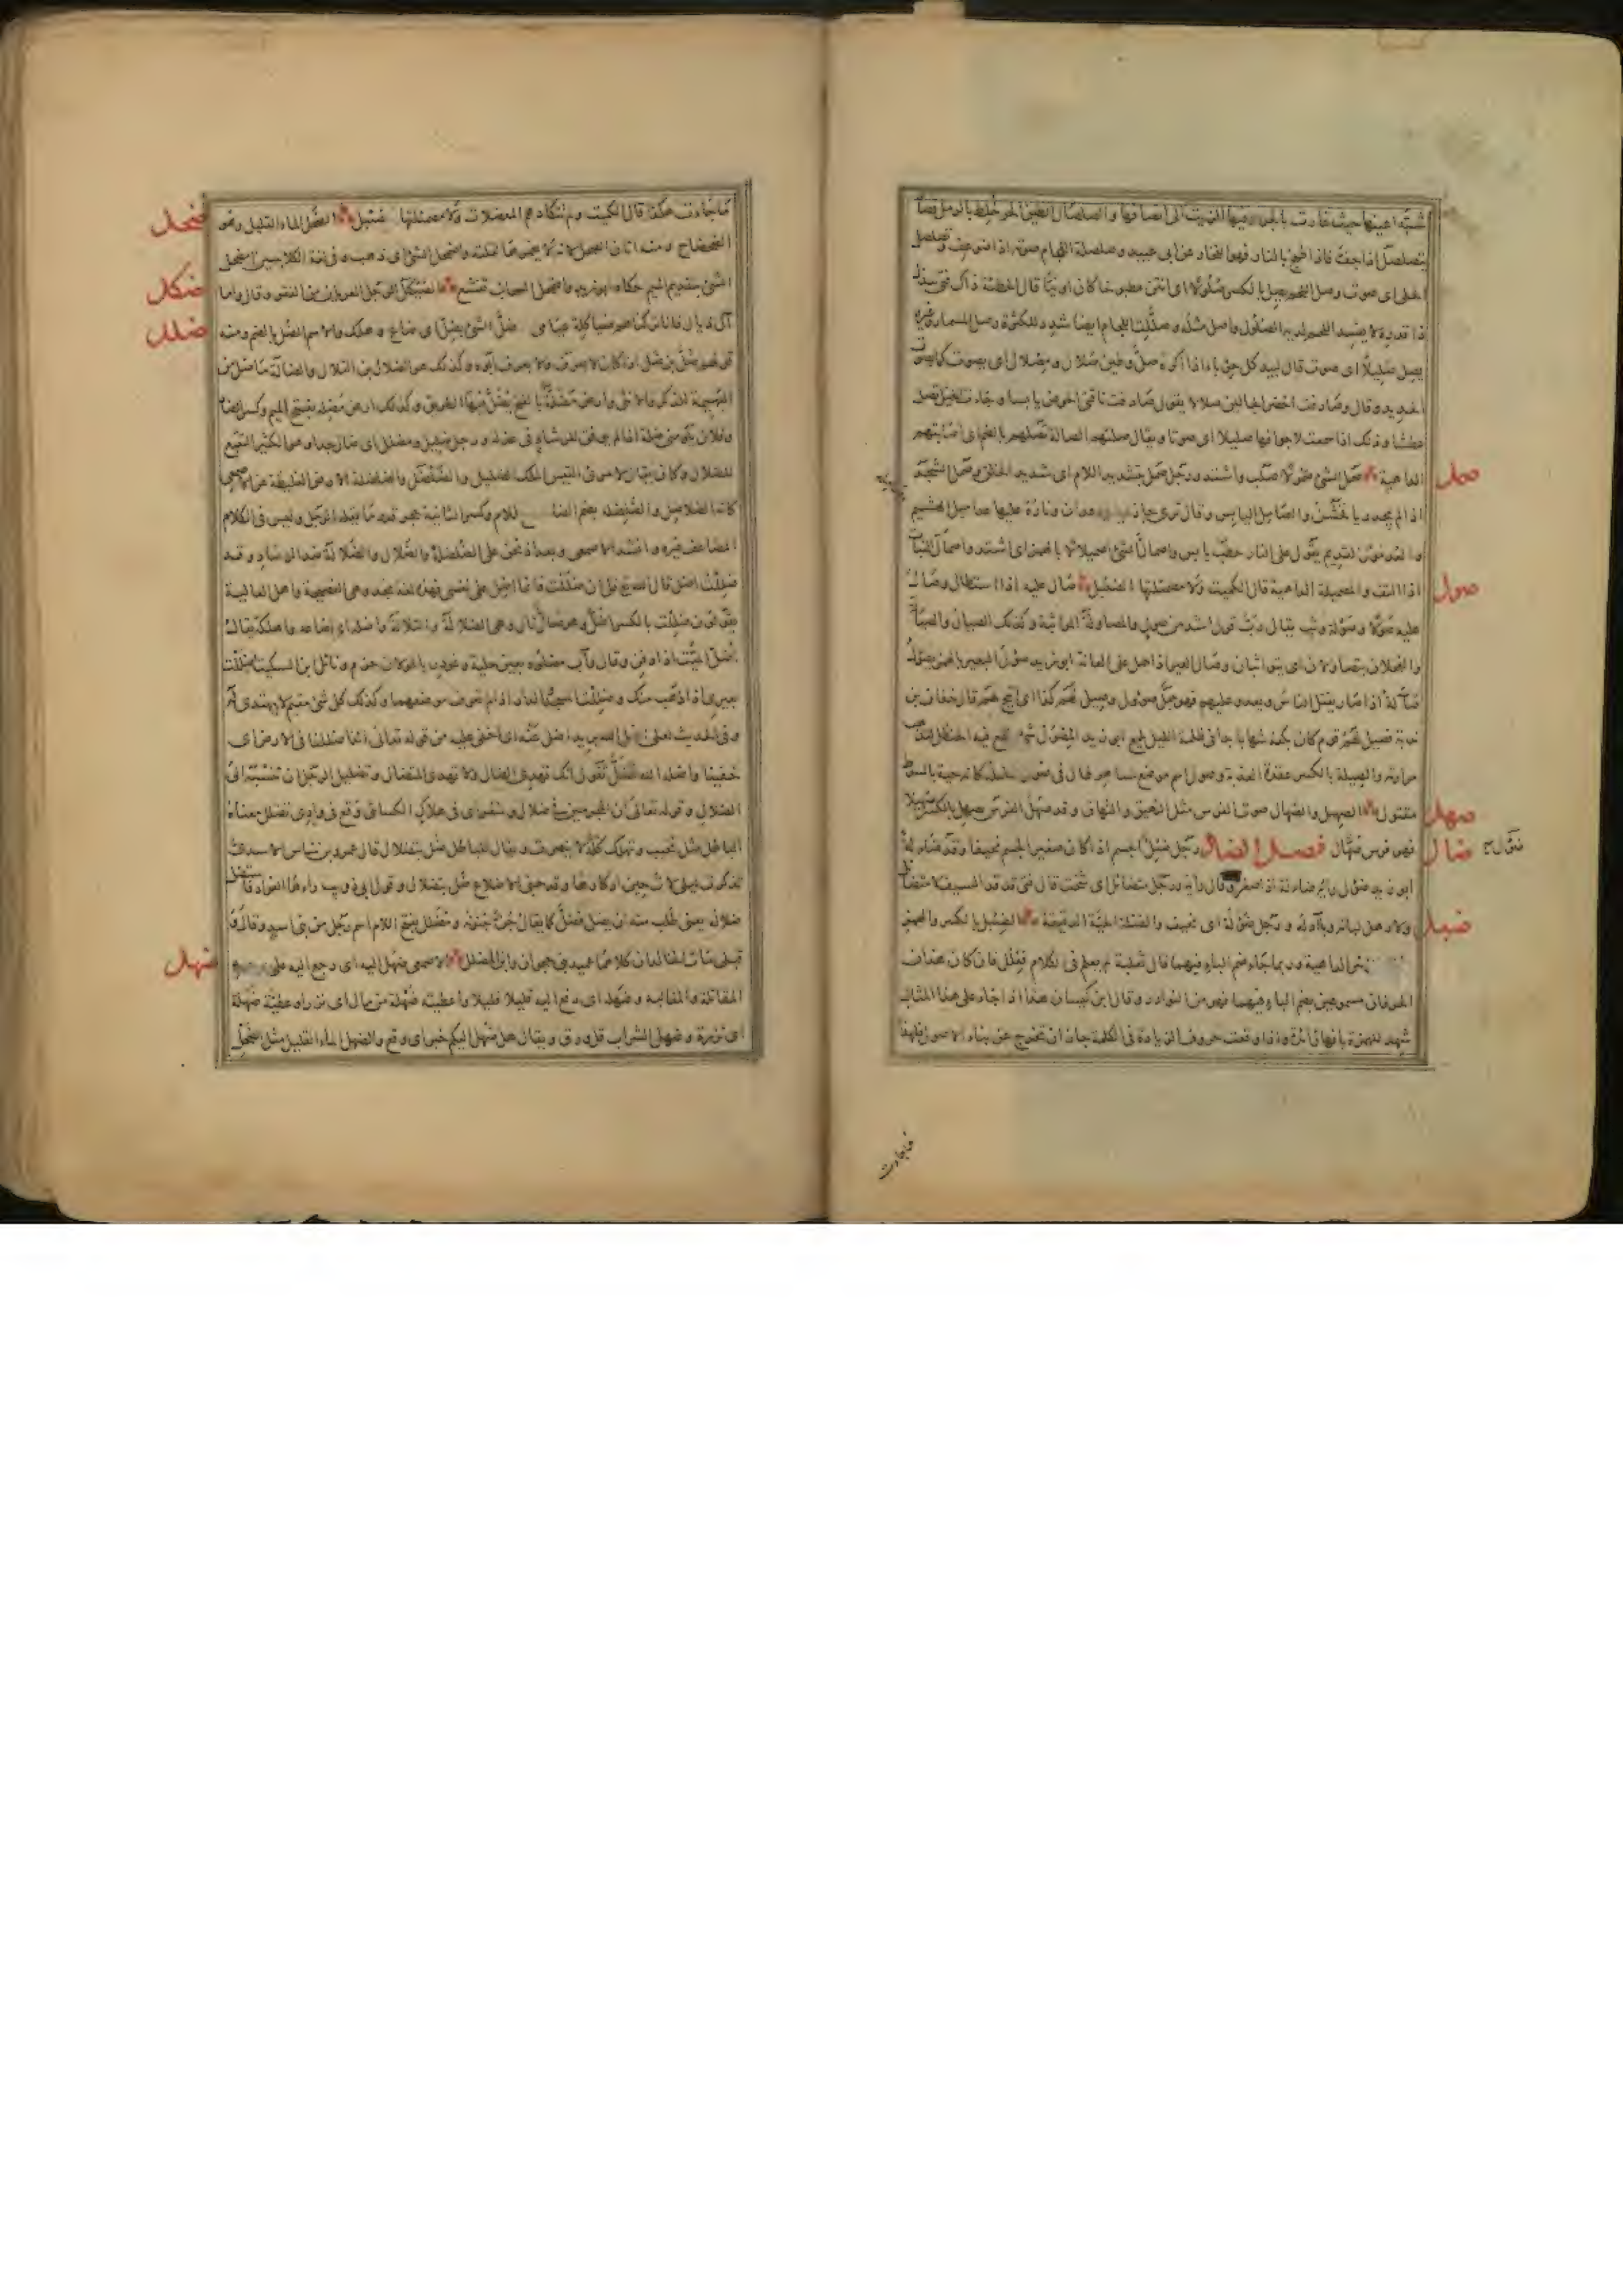 شبه اعينها حيث غارت بالجرار فيها الزيت الى انصافها والصلصال الطين الحر خلط بالرمل فصار
يتصلصل اذا جف فاذا طبخ بالنار فهو الفخار عن ابى عبيد وصلصلة اللجام صوته اذا ضوعف وتصلصل
الحلى اى صوت وصل اللحم يصل بالكسر صلولا اى انتن مطبوخا كان او نيئا قال الحطئة ذاك فتى يبذل
ذا قدره لا يفسد اللحم لديه الصلول واصل مثله وصللت اللجام ايضا شدد للكثرة وصل المسمار وغيره
يصل صليلا اى صوت قال لبيد كل حرباء اذا اكره صل وطين صلال ومصلال اى يصوت كما يصوت
الحديد وقال وصادفت اخضر الجالين صلالا يقول صادفت ناقتى الحوض يابسا وجاءت الخيل تصل
عطشا وذلك اذا سمعت لاجوافها صليلا اى صوتا ويقال صلتهم الصالة تصلهم بالضم اى اصابتهم
صمل
الداهية صمل الشئ صمولا صلب واشتد ورجل صمل بتشديد اللام اى شديد الخلق وصمل الشجر
اذا لم يجد ريا فخشن والصامل اليابس وقال ترى جازريه يرعدان وناره عليها عداميل الهشيم
والعدمول القديم يقول على النار حطب يابس واصمأل الشئ اصميلالا بالهمز اى اشتد واصمأل النبات
صول
اذا التف والمصمئلة الداهية قال الكميت ولا مصمئلتها الضئبل صال عليه اذا استطال وصال
عليه صولا وصولة وثب يقال رب قول اشد من صول والمصاولة المواثبة وكذلك الصيال والصيالة
والفحلان يتصاولان اى يتواثبان وصال العير اذا حمل على العانة ابو زيد صؤل البعير بالهمز يصؤل
صآلة اذا صار يقتل الناس ويعدو عليهم فهو جمل صؤول وصيل لهم كذا اى اتيح لهم قال خفاف بن
ندبة فصيل لهم قرم كان بكفه شهابا بدا فى ظلمة الليل يلمع ابو زيد المصول شئ ينقع فيه الحنظل لتذهب
مرارته والصيلة بالكسر عقدة العذبة وصول اسم موضع
صهل
مقتول الصهيل والصهال صوت الفرس مثل النهيق والنهاق وقد صهل الفرس يصهل بالكسر صهيلا
ضأل
فهو فرس صهال فصل الضاد رجل ضئيل الجسم اذا كان صغير الجسم نحيفا وقد ضؤل ضآلة
ابو زيد ضؤل رايه ضآلة اذا صغر وقال رايه ورجل متضائل اى شخت قال فتى قد قد السيف لا متضائل
ضبل
ولا رهل لباته وبآدله ورجل ضؤلة اى نحيف والضئيلة الحية الدقيقة الضئبل بالكسر والهمز
الداهية وربما جاء ضم الباء فيهما قال ثعلبة لم يعلم فى الكلام فعلل فان كان هذان
الحرفان مسموعين بضم الباء فيهما فهو من النوادر وقال ابن كيسان هذا اذا جاء على هذا المثال
شهد للهمزة بانها زائدة واذا وقعت حروف الزيادة فى الكلمة جاز ان تخرج عن بناء الاصول فلهذا
فما جاءت
ضحل
ما جاءت هكذا قال الكميت ولم تتكاد هم المعضلات ولا مصمئلتها الضئبل الضحل الماء القليل وهو
الضحضاح ومنه اتان الضحل لانه لا يغمرها لقلته واضمحل الشئ اى ذهب وفى لغة الكلابيين امضحل
ضكل
الشئ بتقديم الميم حكاه ابو زيد واضمحل السحاب تقشع الضيكل الرجل العريان من الفقر وقال واما
ضلل
آل ذيال فانا تركناهم ضياكلة عيامى ضل الشئ يضل اى ضاع وهلك والاسم الضل بالضم ومنه
قولهم ضل بن ضل اذا كان لا يعرف ولا يعرف ابوه وكذلك هو الضلال بن التلال والضالة ما ضل من
البهيمة الذكر والانثى وارض مضلة بالفتح يضل فيها الطريق وكذلك ارض مضلة بفتح الميم وكسر الضاد
وفلان يلومنى ضلة اذا لم يوفق للرشاد فى عذله ورجل ضليل ومضلل اى ضال جدا وهو الكثير التتبع
للضلال وكان يقال لامرئ القيس الملك الضليل والضلضل والضلضلة الارض الغليظة عن الاصمعى
كانه الضلاضل والضلضلة بضم الضاد وفتح اللام وكسر الثانية حجر قدر ما يقله الرجل وليس فى الكلام
المضاعف غيره وانشد الاصمعى وبعد اذ نحن على الضلضلة والضلال والضلالة ضد الرشاد وقد
ضللت اضل قال الله تعالى قل ان ضللت فانما اضل على نفسى فهذه لغة نجد وهى الفصيحة واهل العالية
يقولون ضللت بالكسر اضل وهو ضال تال وهى الضلالة والتلالة واضله اى اضاعه واهلكه يقال
اضل الميت اذا دفن وقال وآب مضلوه بعين جلية وغودر بالجولان حزم ونائل ابن السكيت اضللت
بعيرى اذا ذهب منك وضللت المسجد والدار اذا لم تعرف موضعهما وكذلك كل شئ مقيم لا يهتدى له
وفى الحديث لعلى اضل الله يريد اضل عنه اى اخفى عليه من قوله تعالى ائذا ضللنا فى الارض اى
خفينا واضله الله فضل تقول انك تهدى الضال ولا تهدى المتضال وتضليل الرجل ان تنسبه الى
الضلال وقوله تعالى ان المجرمين فى ضلال وسعر اى فى هلاك الكسائى وقع فى وادى تضلل معناه
الباطل مثل تخيب وتهلك كله لا ينصرف ويقال للباطل ضل بتضلال قال عمرو بن شاس الاسدى
تذكرت ليلى لات حين ادكارها وقد حنى الاضلاع ضل بتضلال وقول ابى ذويب راها الفواد فاستضل
ضلاله يعنى طلب منه ان يضل فضل كما يقال جن جنونه ومضلل بفتح اللام اسم رجل من بنى اسد وقال
ضهل
قبلى مات الخالدان كلاهما عميد بنى جحوان وابن المضلل الاصمعى ضهل اليه اى رجع اليه على وجه
المقاتلة والمغالبة وضهل اى دفع اليه قليلا قليلا واعطيته ضهلة من مال اى نزرا وعطية ضهلة
اى نزرة وضهل الشراب قل ورق ويقال هل ضهل اليكم خبر اى وقع والضهل الماء القليل مثل الضحل